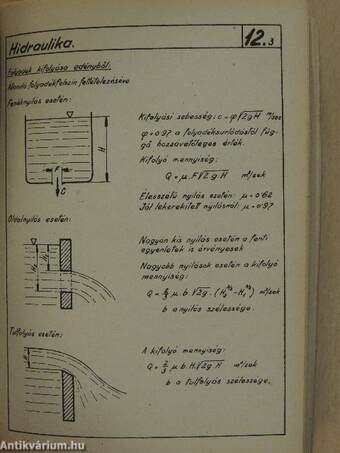 Hidraulika.
12.3
Folyadék kifolyása edényből:
Állandó folyadékfelszín feltételezésével
Fenéknyílás esetén:
Kifolyási sebesség: c = φ√2gH m/sec
φ = 0.97 a folyadéksurlódástól füg-
gő hozzávetőleges érték.
Kifolyó mennyiség:
Q = μ.F√2g.H m³/sek
Élesszélű nyílás esetén: μ = 0.62
Jól lekerekített nyílásnál: μ = 0.97
H
F
C
Oldalnyílás esetén:
Nagyon kis nyílás esetén a fenti
egyenletek is érvényesek
Nagyobb nyílások esetén a kifolyó
mennyiség:
Q = ⅔ μ.b.√2g.(H₂^3/2 - H₁^3/2) m³/sek
b a nyílás szélessége.
H₂
H₁
Tulfolyás esetén:
A kifolyó mennyiség:
Q = 2/3 μ.b.H.√2g.H m³/sek
b a tulfolyás szélessége.
H
Antikvárium.hu